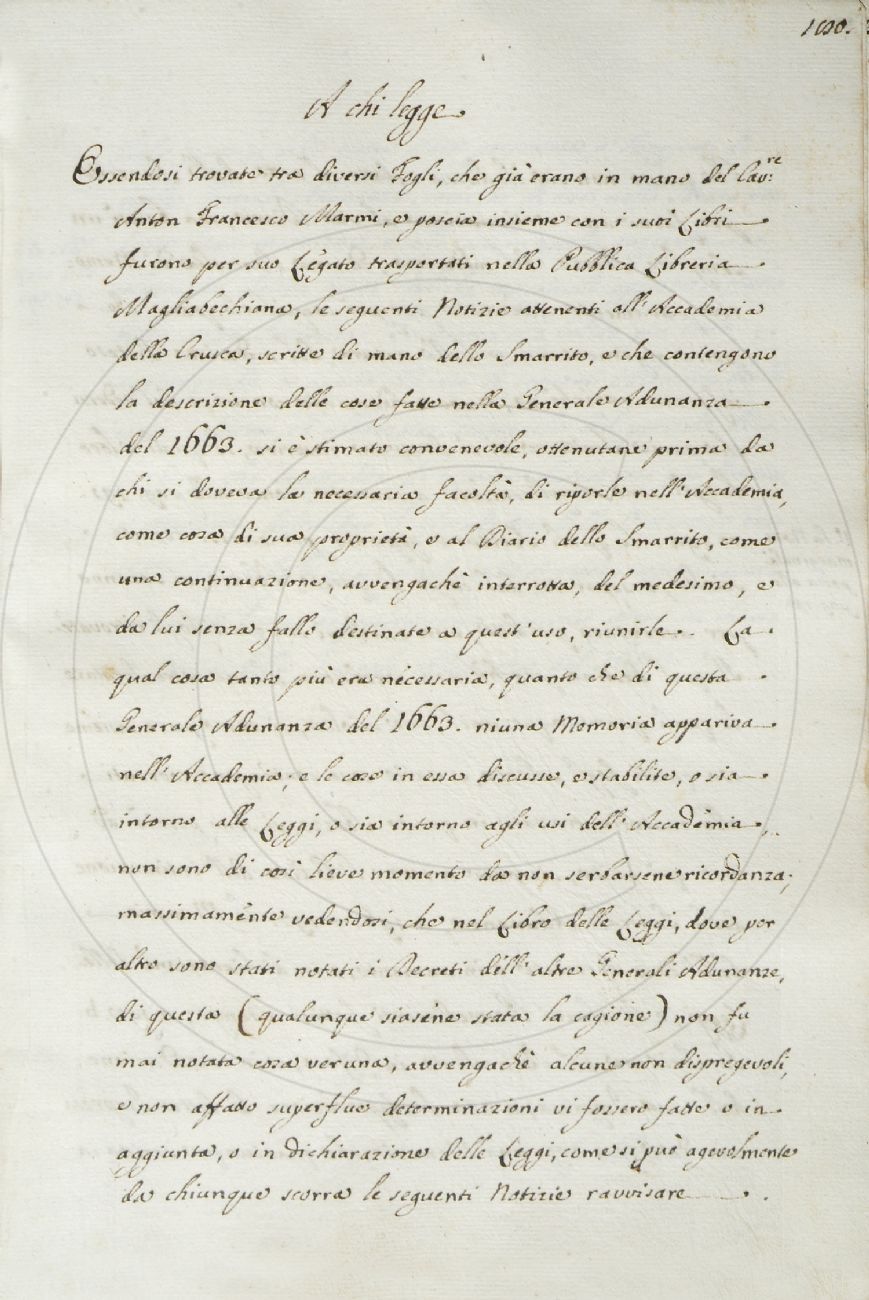 A chi legge
Essendosi trovate tra diversi Fogli, che già erano in mano del Cav:re
Anton Francesco Marmi, e poscia insieme con i suoi Libri
furono per suo Legato trasportati nella Pubblica Libreria
Magliabechiana, le seguenti Notizie attenenti all'Accademia
della Crusca, scritte di mano dello Smarrito, e che contengono
la descrizione delle cose fatte nella Generale Adunanza
del 1663. si è stimato convenevole, ottenutane prima da
chi si doveva la necessaria facoltà, di riporle nell'Accademia,
come cosa di sua proprietà, e al Diario dello Smarrito, come
una continuazione, avvengachè interrotta, del medesimo, e
da lui senza fallo destinate a quest'uso, riunirle. La
qual cosa tanto più era necessaria, quanto che di questa
Generale Adunanza del 1663. niuna Memoria appariva
nell'Accademia; e le cose in essa discusse, e stabilite, o sia
intorno alle Leggi, o sia intorno agli usi dell'Accademia,
non sono di così lieve momento da non serbarsene ricordanza;
massimamente vedendosi, che nel Libro delle Leggi, dove per
altro sono stati notati i Decreti dell'altre Generali Adunanze,
di questa (qualunque siasene stata la cagione) non fu
mai notata cosa veruna, avvengachè alcune non dispregevoli,
e non affatto superflue determinazioni vi fossero fatte o in
aggiunta, o in dichiarazione delle Leggi, come si può agevolmente
da chiunque scorra le seguenti Notizie ravvisare.